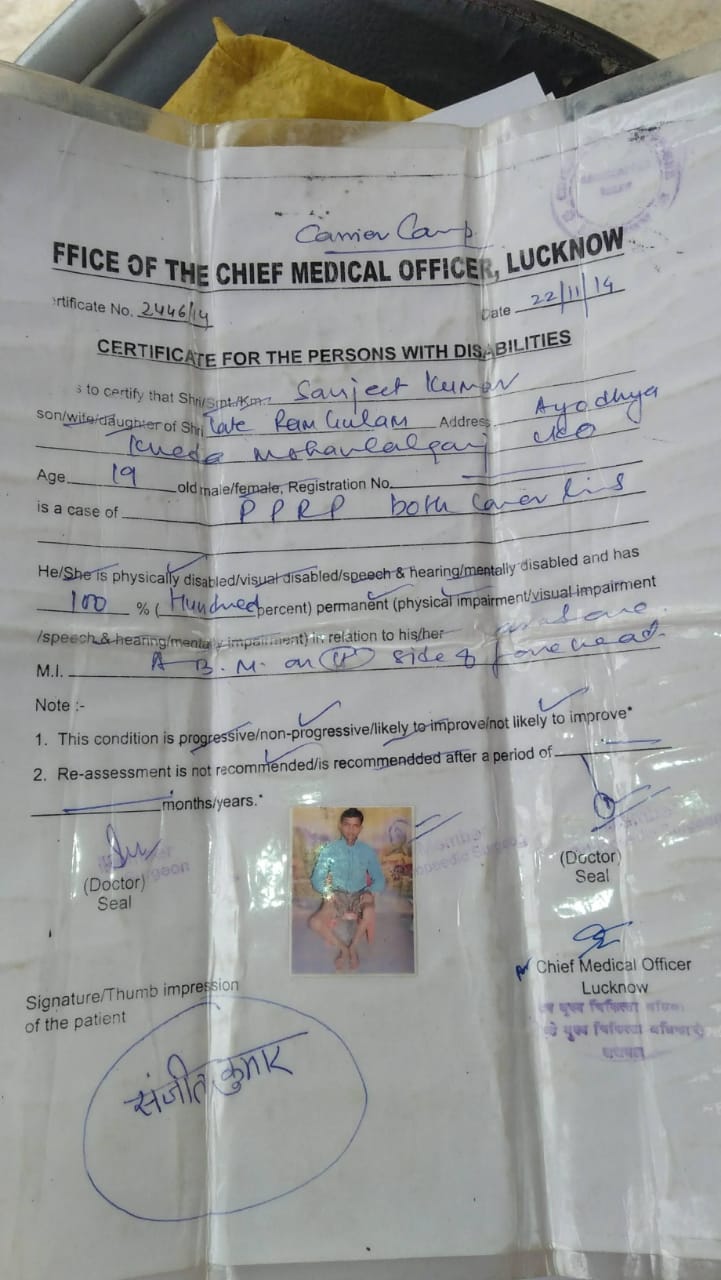 Carrier Camp
FFICE OF THE CHIEF MEDICAL OFFICER, LUCKNOW
rtificate No. 2446/14
Date 22/11/14
CERTIFICATE FOR THE PERSONS WITH DISABILITIES
s to certify that Shri/Smt./Km. Sanjeet Kumar
son/wife/daughter of Shri Late Ram Gulam Address Ayodhya
Kheda Mohanlalganj LKO
Age 19 old male/female, Registration No.
is a case of PPRP both Lower limb
He/She is physically disabled/visual disabled/speech & hearing/mentally disabled and has
100 % (Hundred percent) permanent (physical impairment/visual impairment
/speech & hearing/mentally impairment) in relation to his/her
M.I. A B.M. on side of forehead.
Note :-
1. This condition is progressive/non-progressive/likely to improve/not likely to improve*
2. Re-assessment is not recommended/is recommendded after a period of
months/years.*
(Doctor)
Seal
(Doctor)
Seal
Chief Medical Officer
Lucknow
Signature/Thumb impression
of the patient
संजीत कुमार